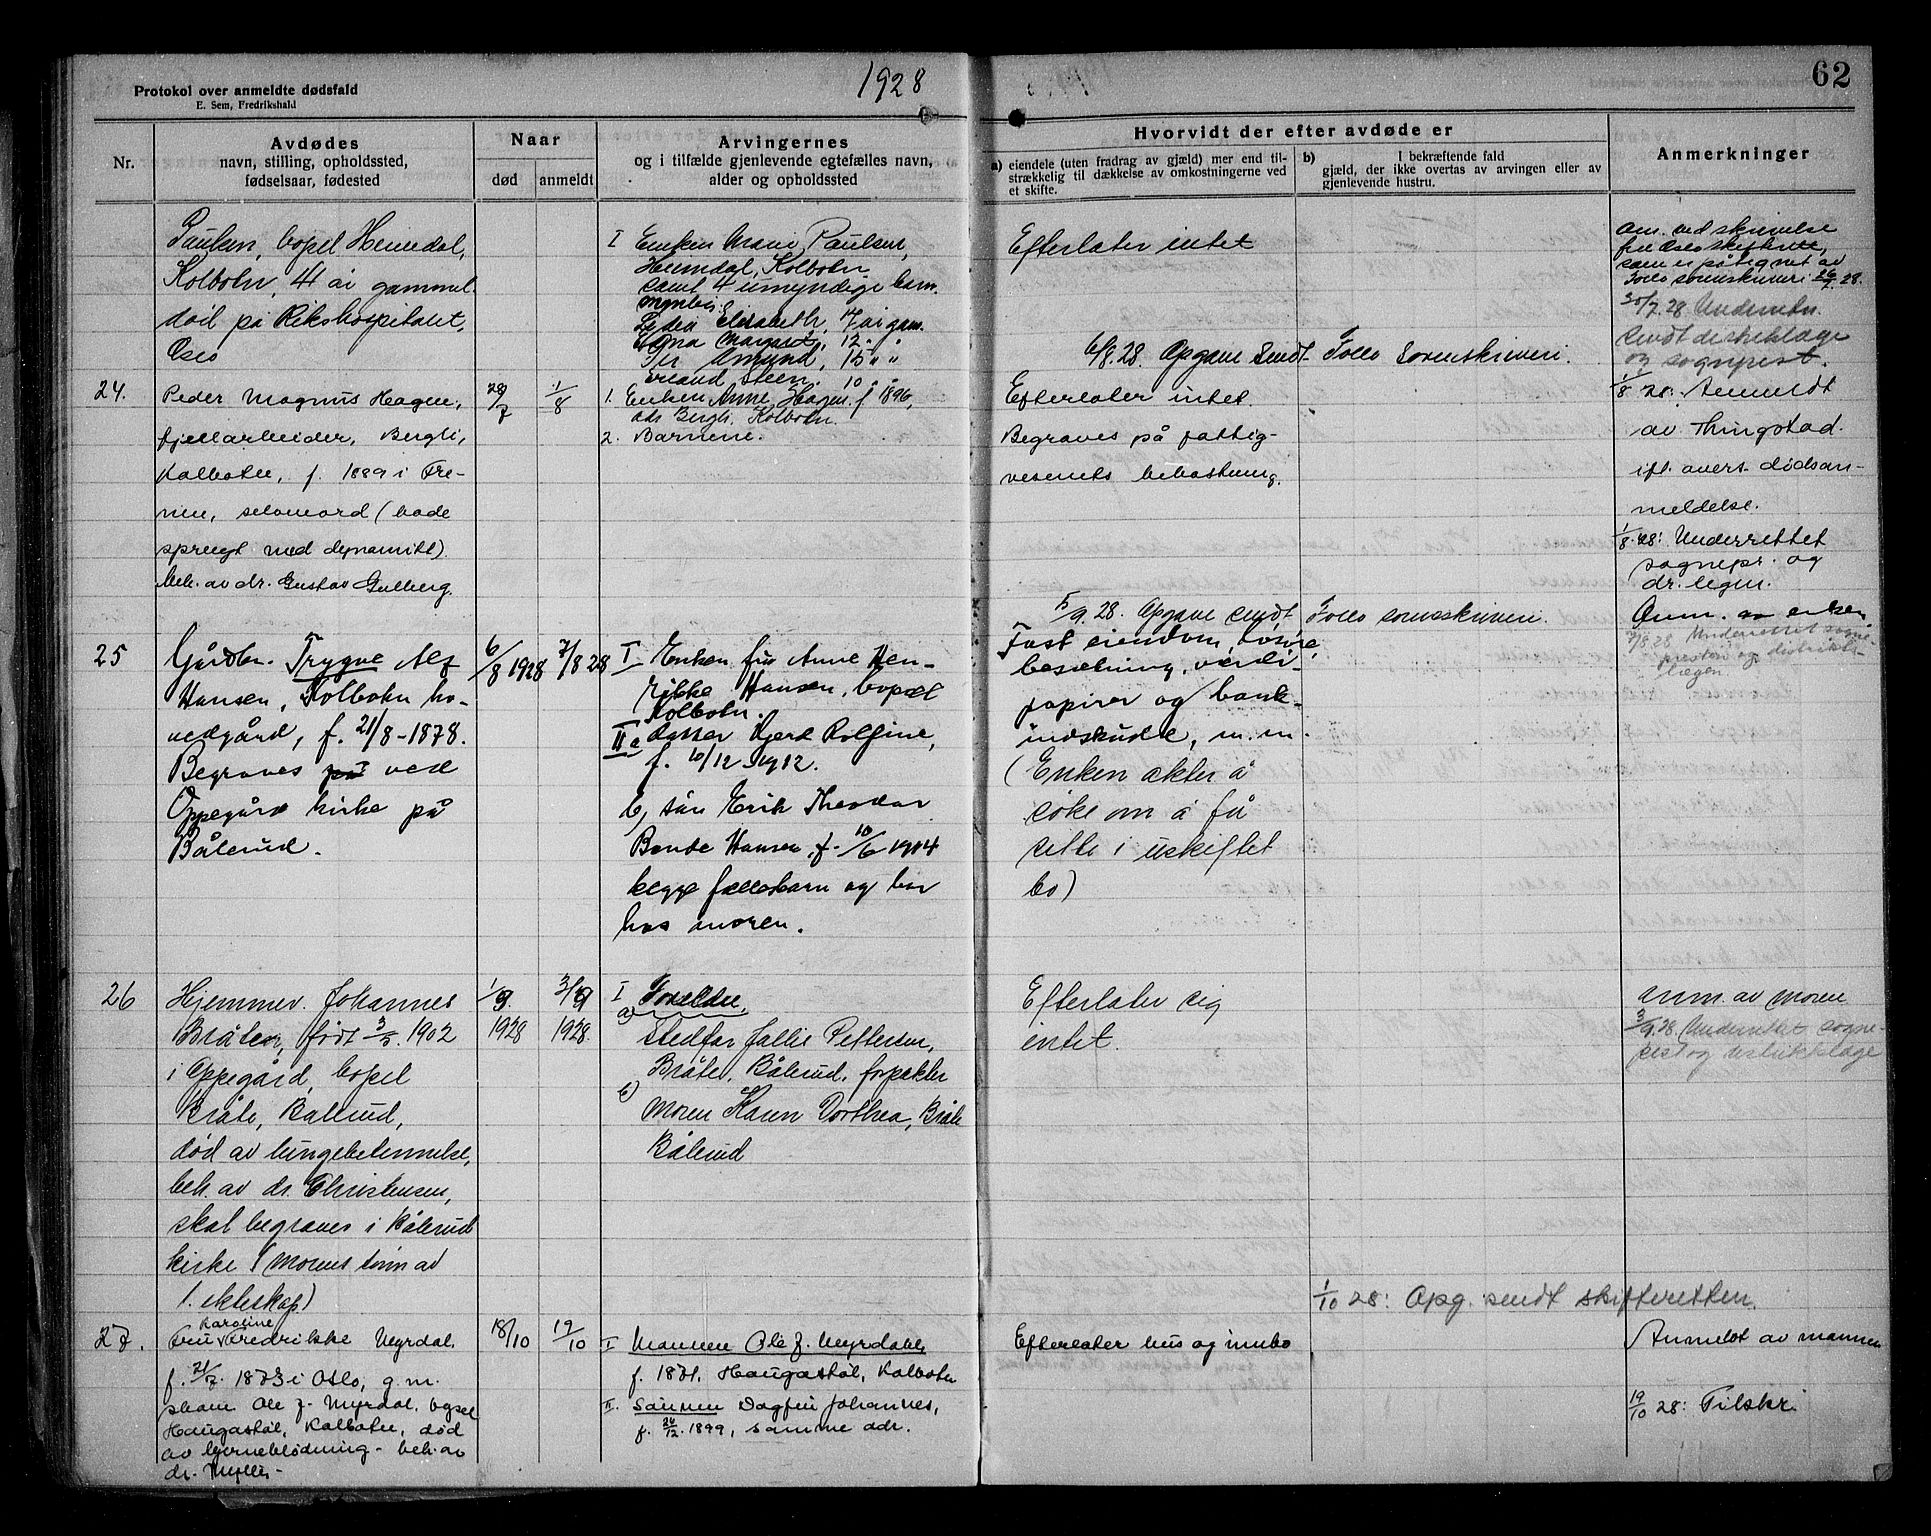 1928
62
Protokol over anmeldte dødsfald
E. Sem, Fredrikshald
Nr.
Avdødes
navn, stilling, opholdssted,
fødselsaar, fødested
Naar
død
anmeldt
Arvingernes
og i tilfælde gjenlevende egtefælles navn,
alder og opholdssted
Hvorvidt der efter avdøde er
a) eiendele (uten fradrag av gjæld) mer end til-
strækkelig til dækkelse av omkostningerne ved
et skifte.
b) I bekræftende fald
gjæld, der ikke overtas av arvingen eller av
gjenlevende hustru.
Anmerkninger
bopel Heimdal,
Kolbotn, 41 år gammel
død på Rikshospitalet,
Oslo
I Enken Marie Paulsen,
Heimdal, Kolbotn
samt 4 umyndige barn
Elisabeth, 7 år gam.
Margaret, 12 " "
Per Amund, 15 " "
Erland Steen. 10 " "
Efterlater intet
6/8.28. Opgave sendt Follo Sorenskriveri.
Anm. ved skrivelse
fra Oslo skifterett,
som er påtegnet av
Follo sorenskriveri 26/7 28.
30/7.28 Underretn.
sendt distriktslæge
og sogneprest.
24.
Peder Magnus Hagen,
fjellarbeider, Bergli,
Kolbotn, f. 1889 i
selvmord (hode
sprengt med dynamitt).
beh. av dr. Gustav Gulberg.
29/7
1/8
1. Enken Anne Hagen f 1896,
ads Bergli, Kolbotn.
2. Barnene.
Efterlater intet.
Begraves på fattig-
vesenets bekostning.
1/8 28: Anmeldt
av Thingstad
ifl. overs. dødsan-
meldelse.
1/8 28: Underrettet
sognepr. og
dr. legen.
5/9.28. Opgave sendt Follo sorenskriveri.
25
Gårdbr. Trygve Alf
Hansen, Kolbotn ho-
vedgård, f. 21/8-1878.
Begraves på ved
Oppegård kirke på
Bålerud.
6/8 1928
7/8 28
I Enken fru Anne Hen-
rikke Hansen, bopæl
Kolbotn.
II a datter Gerd Rolfine,
f. 10/12-1912.
b, søn Erik Theodor
Bonde Hansen, f. 10/6 1914
begge fællesbarn og bor
hos moren.
Fast eiendom, løsøre,
besætning, verdi-
papirer og bank-
indskudd, m.m.
(Enken akter å
søke om å få
sitte i uskiftet
bo)
Anm. av enken
7/8.28 Underrettet sogne-
presten og distrikts-
lægen.
26
Hjemmev. Johannes
Bråten, født 3/5.1902
i Oppegård, bopel
Bråte, Bålerud,
død av lungebetennelse,
beh. av dr. Christensen,
skal begraves i Bålerud
kirke (Morens sønn av
1. ekteskap)
1/9.
1928
3/9
1928.
I Foreldre
a)
Stedfar Jallis Pettersen,
Bråte, Bålerud, forpakter
b)
Moren Karen Dorthea, Bråte
Bålerud
Efterlater sig
intet.
Anm. av moren
3/9.28. Underrettet sogne-
prest og distriktslæge
1/10 28: Opg. sendt skifteretten.
27.
Karoline
Fru Fredrikke Myrdal,
f. 21/7. 1873 i Oslo, g.m.
Ole J. Myrdal, bopel
Haugastøl, Kolbotn, død
av hjerneblødning - beh. av
dr.
18/10
19/10
I Mannen Ole J. Myrdahl,
f. 1871, Haugastøl, Kolbotn
II. Sønnen Dagfin Johannes,
f. 26/12.1899, samme adr.
Efterlater hus og innbo
Anmeldt av mannen
19/10 28: Tilskr.